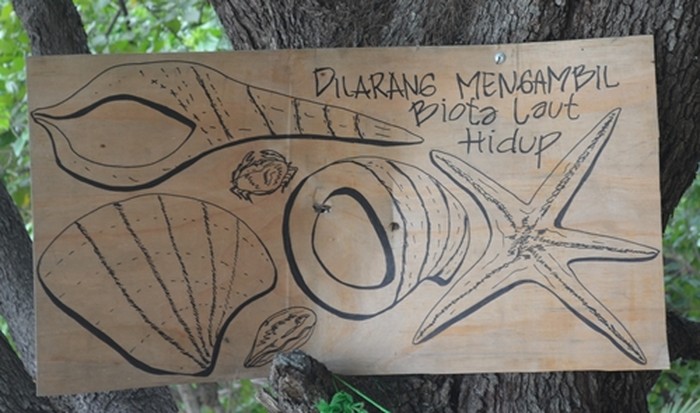 DILARANG MENGAMBIL
Biota Laut
Hidup